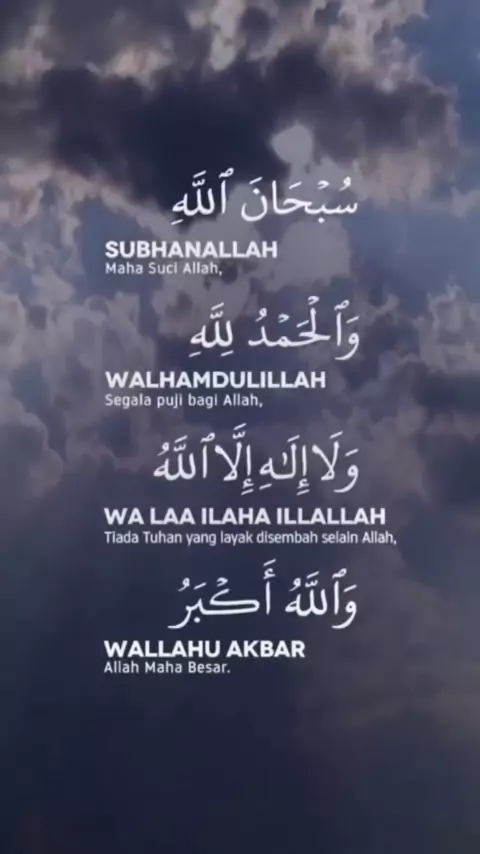 سُبْحَانَ ٱللَّهِ
SUBHANALLAH
Maha Suci Allah,
وَٱلْحَمْدُ لِلَّهِ
WALHAMDULILLAH
Segala puji bagi Allah,
وَلَا إِلَـٰهِ إِلَّا ٱللَّهُ
WA LAA ILAHA ILLALLAH
Tiada Tuhan yang layak disembah selain Allah,
وَٱللَّهُ أَكْبَرُ
WALLAHU AKBAR
Allah Maha Besar.